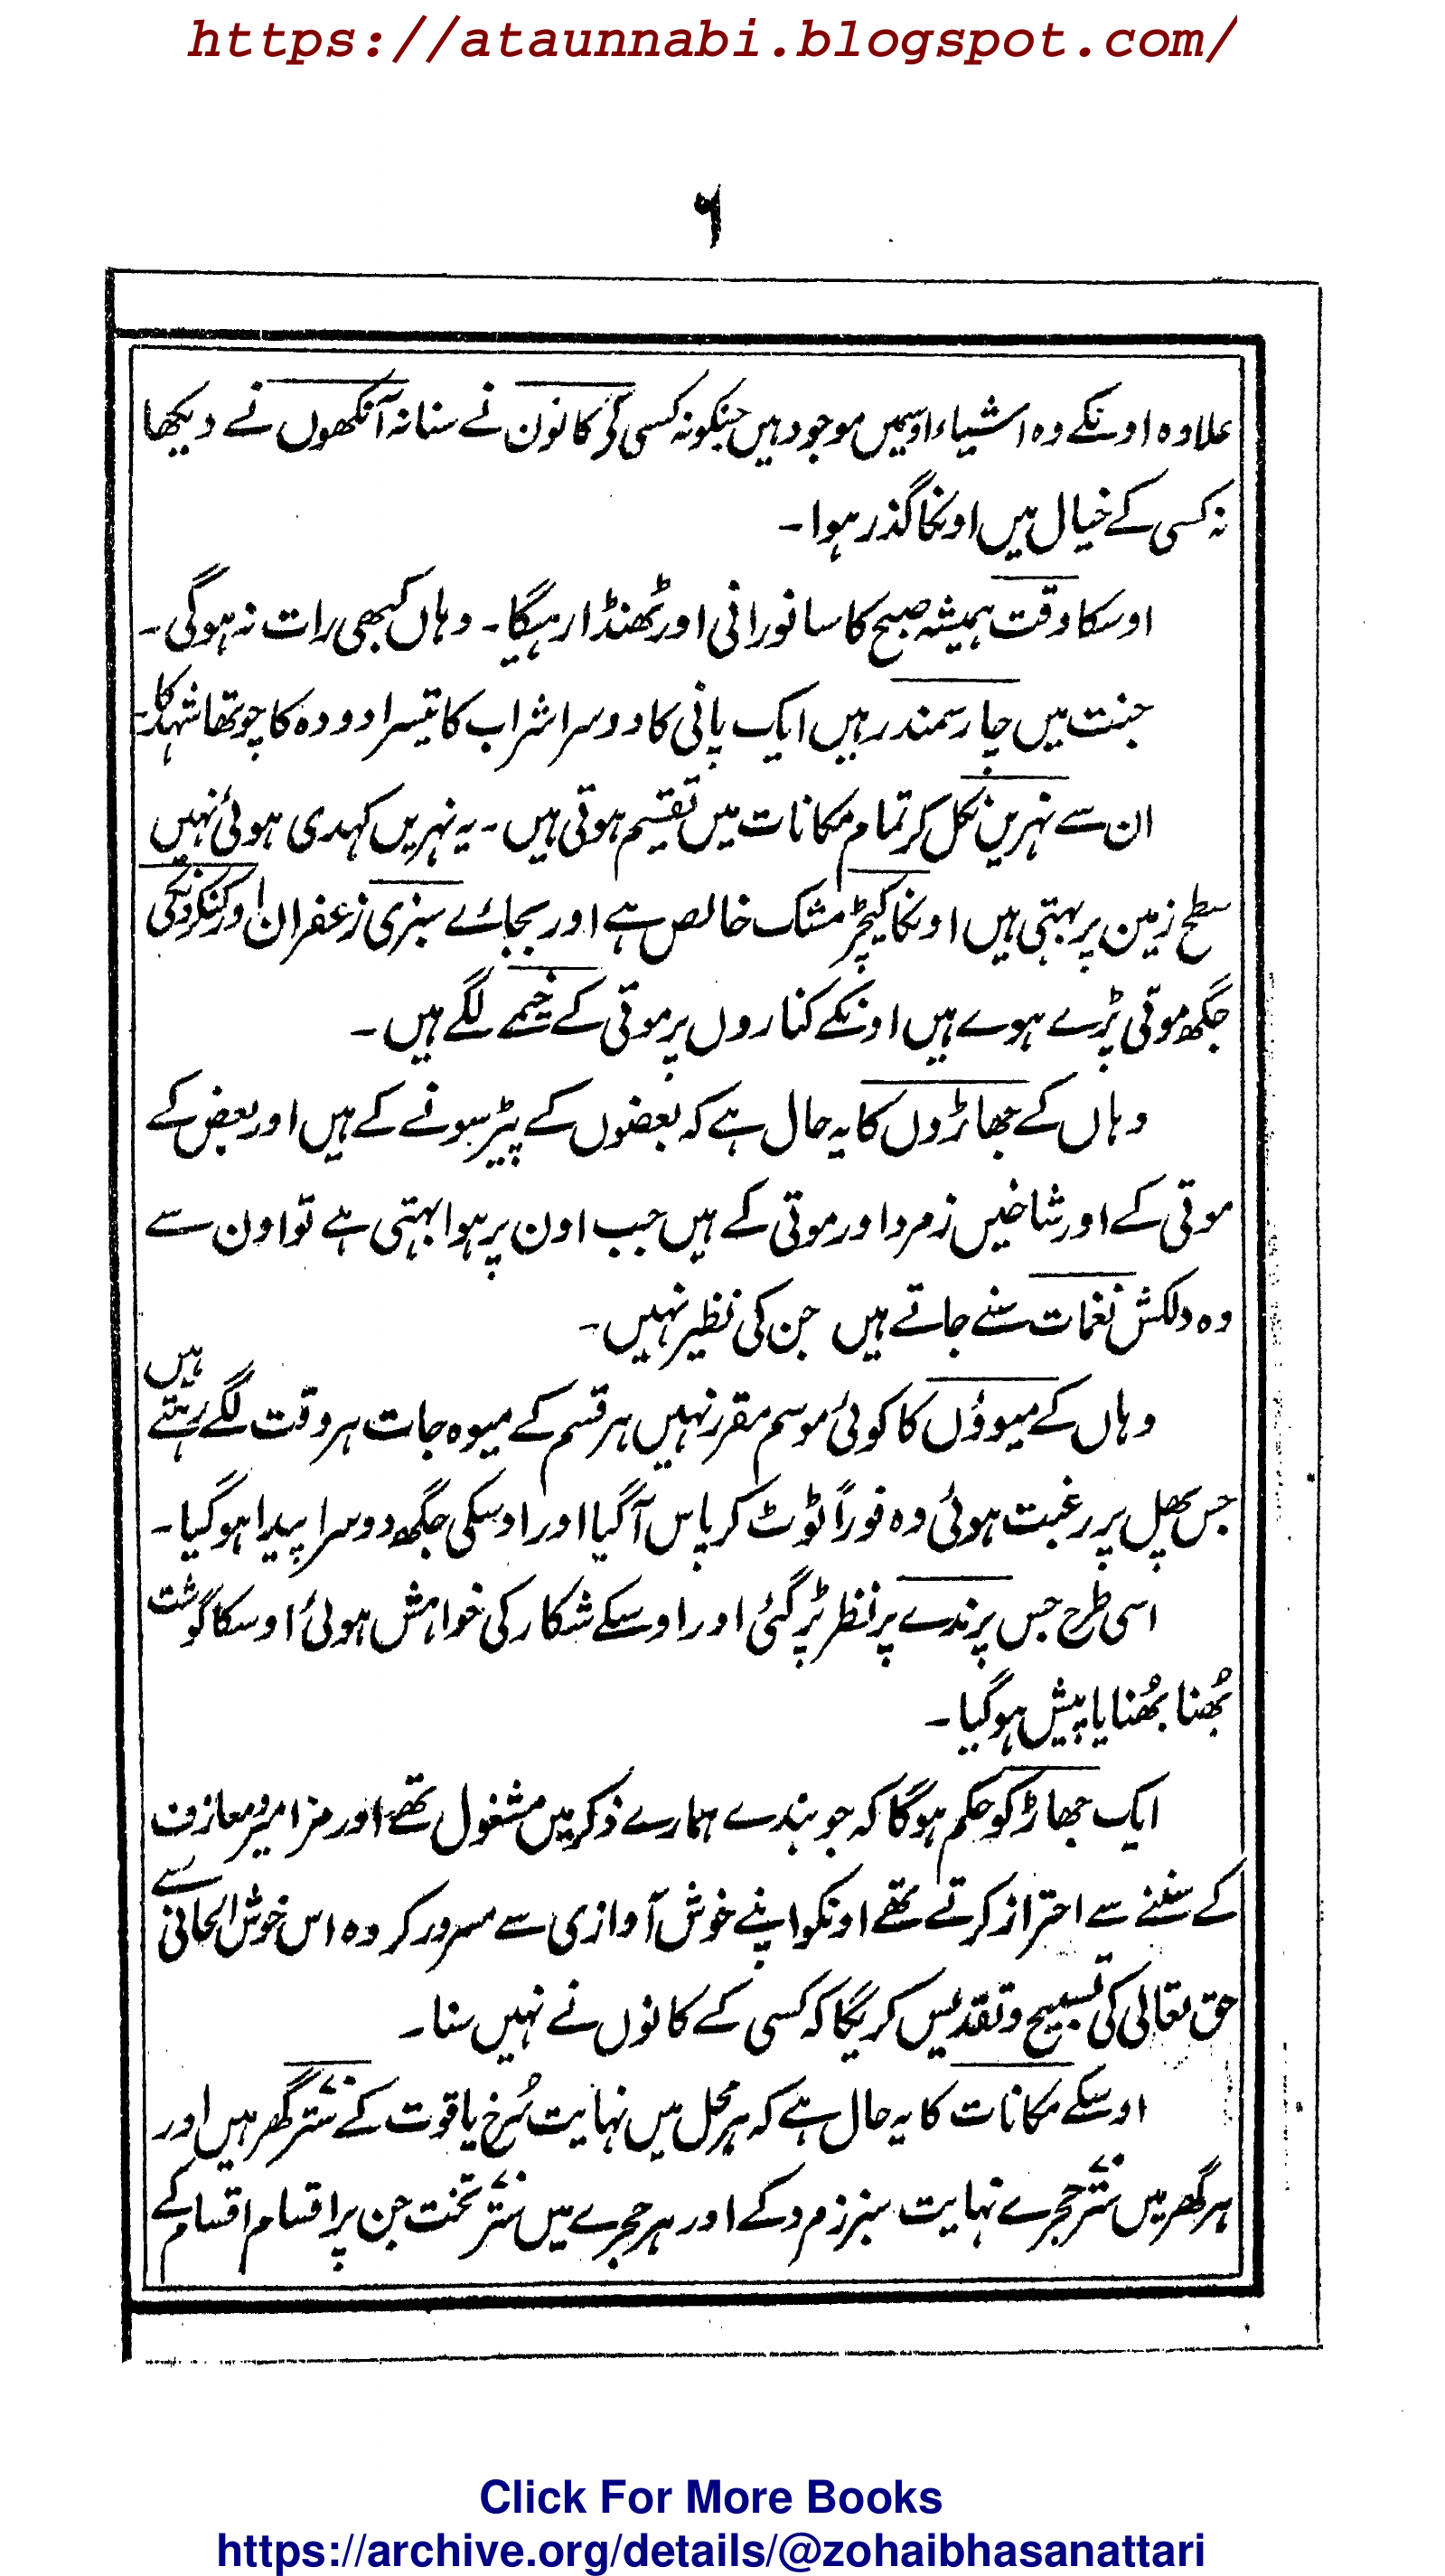 https://ataunnabi.blogspot.com/
۶
علاوہ اونکے وہ اشیاء اوسمیں موجود ہیں جنکو نہ کسی کے کانون نے سنا نہ آنکھوں نے دیکھا
نہ کسی کے خیال میں اونکا گذر ہوا۔
اوسکا وقت ہمیشہ صبح کا سا نورانی اور ٹھنڈا رہیگا۔ وہاں کبھی رات نہ ہوگی۔
جنت میں چار سمندر ہیں ایک پانی کا دوسرا شراب کا تیسرا دودہ کا چوتھا شہد کا۔
ان سے نہرین نکل کر تمام مکانات میں تقسیم ہوتی ہیں۔ یہ نہریں کہدی ہوئی نہیں
سطح زمین پر بہتی ہیں اونکا کیچڑ مشک خالص ہے اور بجائے سبزی زعفران اور کنکر ونکی
جگھ موتی پڑے ہوے ہیں اونکے کناروں پر موتی کے خیمے لگے ہیں۔
وہاں کے جھاڑوں کا یہ حال ہے کہ بعضوں کے پیڑ سونے کے ہیں اور بعض کے
موتی کے اور شاخیں زمرد اور موتی کے ہیں جب اون پر ہوا بہتی ہے تو اون سے
وہ دلکش نغمات سنے جاتے ہیں جن کی نظیر نہیں۔
وہاں کے میوؤں کا کوئی موسم مقرر نہیں ہر قسم کے میوہ جات ہر وقت لگے رہتے ہیں
جس پھل پر رغبت ہوئی وہ فوراً ٹوٹ کر پاس آگیا اور اوسکی جگھ دوسرا پیدا ہوگیا۔
اسی طرح جس پرندے پر نظر پڑگئی اور اوسکے شکار کی خواہش ہوئی اوسکا گوشت
بُھنا بُھنایا پیش ہوگیا۔
ایک جھاڑ کو حکم ہوگا کہ جو بندے ہمارے ذکر میں مشغول تھے اور مزامیر و معازف
کے سننے سے احتراز کرتے تھے اونکو اپنے خوش آوازی سے مسرور کر وہ اس خوش الحانی سے
حق تعالی کی تسبیح و تقدیس کریگا کہ کسی کے کانوں نے نہیں سنا۔
اوسکے مکانات کا یہ حال ہے کہ ہر محل میں نہایت سُرخ یاقوت کے ستر گھر ہیں اور
ہر گھر میں ستر حجرے نہایت سبز زمرد کے اور ہر حجرے میں ستر تخت جن پر اقسام اقسام کے
Click For More Books
https://archive.org/details/@zohaibhasanattari